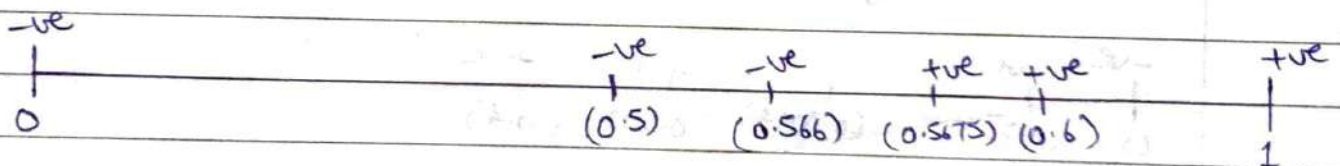 -ve -ve -ve +ve +ve +ve
0 (0.5) (0.566) (0.5675) (0.6) 1